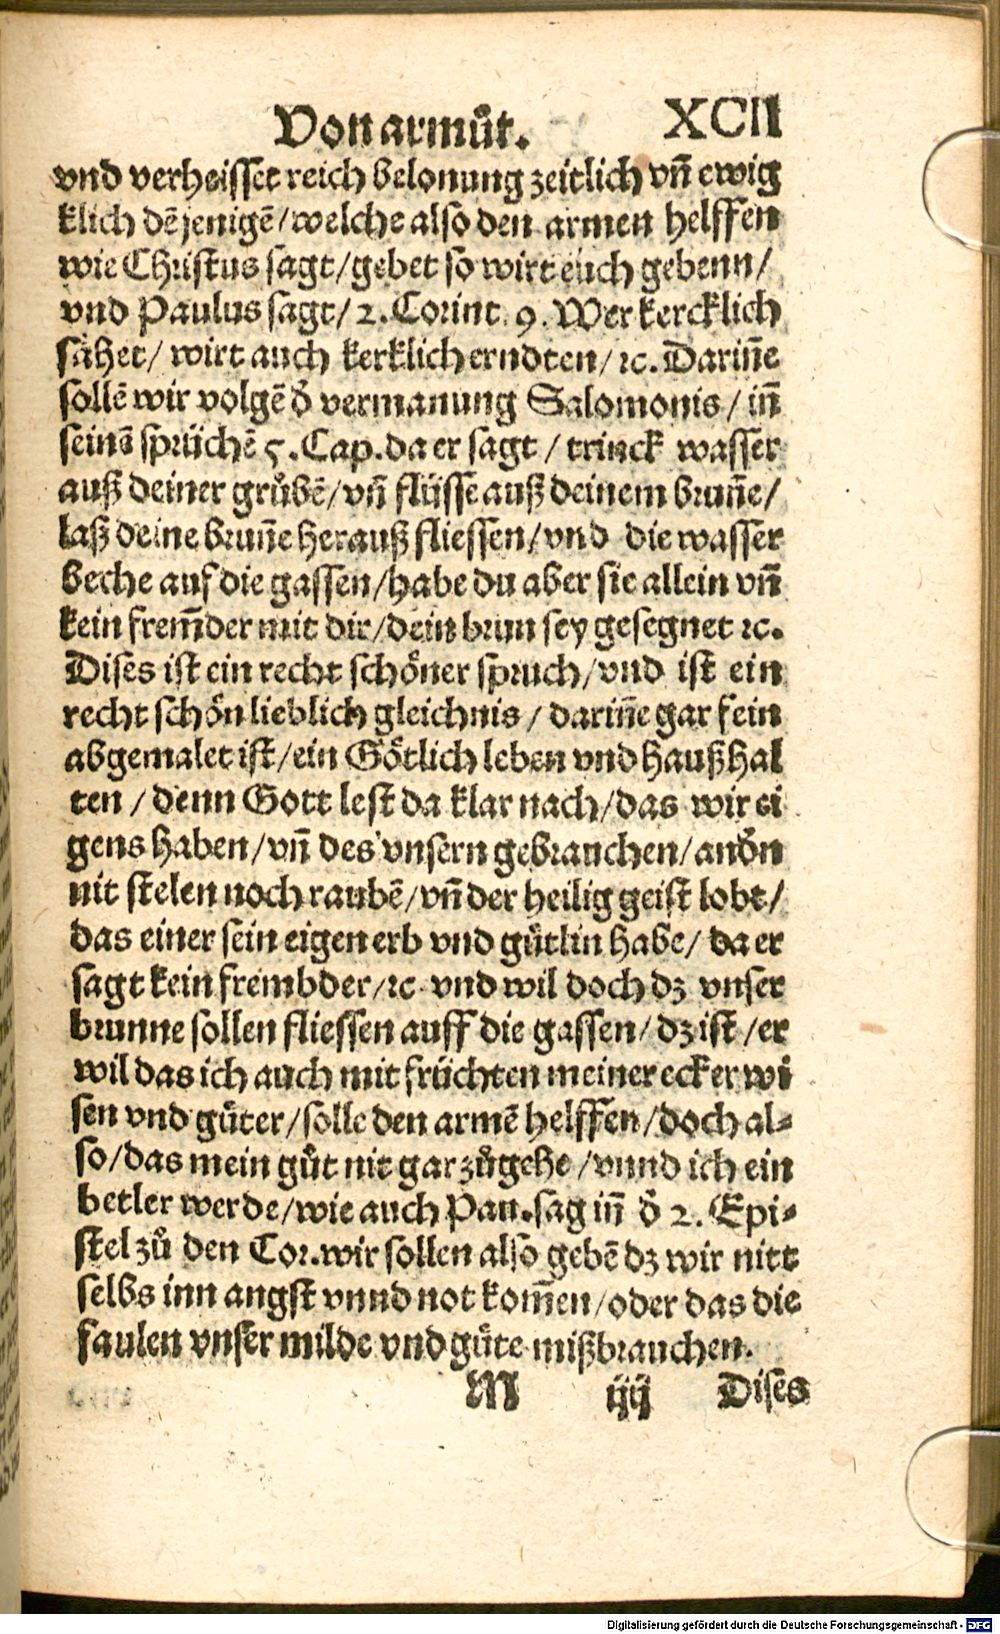 Von armůt. XCII
vnd verheisset reich belonung zeitlich vñ ewig
klich dẽ jenigẽ/welche also den armen helffen
wie Christus sagt/gebet so wirt euch gebenn/
vnd Paulus sagt/ 2. Corint. 9. Wer kercklich
sähet/ wirt auch kerklich erndten/ ꝛc. Dariñe
sollẽ wir volgẽ ð vermanung Salomonis / iñ
seinẽ sprüchẽ 5. Cap. da er sagt / trinck wasser
auß deiner grůbẽ/vñ flüsse auß deinem bruñe/
laß deine bruñe herauß fliessen/vnd die wasser
beche auf die gassen/habe du aber sie allein vñ
kein frem̃der mit dir/dein brun sey gesegnet ꝛc.
Dises ist ein recht schöner spruch/vnd ist ein
recht schön lieblich gleichnis / dariñe gar fein
abgemalet ist/ein Götlich leben vnd haußhal
ten / denn Gott lest da klar nach/das wir ei
gens haben/vñ des vnsern gebrauchen/anðn
nit stelen noch raubẽ/vñ der heilig geist lobt/
das einer sein eigen erb vnd gütlin habe/ da er
sagt kein frembder/ꝛc vnd wil doch dz vnser
brunne sollen fliessen auff die gassen/ dz ist /er
wil das ich auch mit früchten meiner ecker wi
sen vnd güter/solle den armẽ helffen/doch al-
so/das mein gůt nit gar zůgehe /vnnd ich ein
betler werde/wie auch Pau.sag iñ ð 2. Epi-
stel zů den Cor.wir sollen also gebẽ dz wir nitt
selbs inn angst vnnd not kom̃en/oder das die
faulen vnser milde vnd güte mißbrauchen.
M iiij Dises
Digitalisierung gefördert durch die Deutsche Forschungsgemeinschaft - DFG